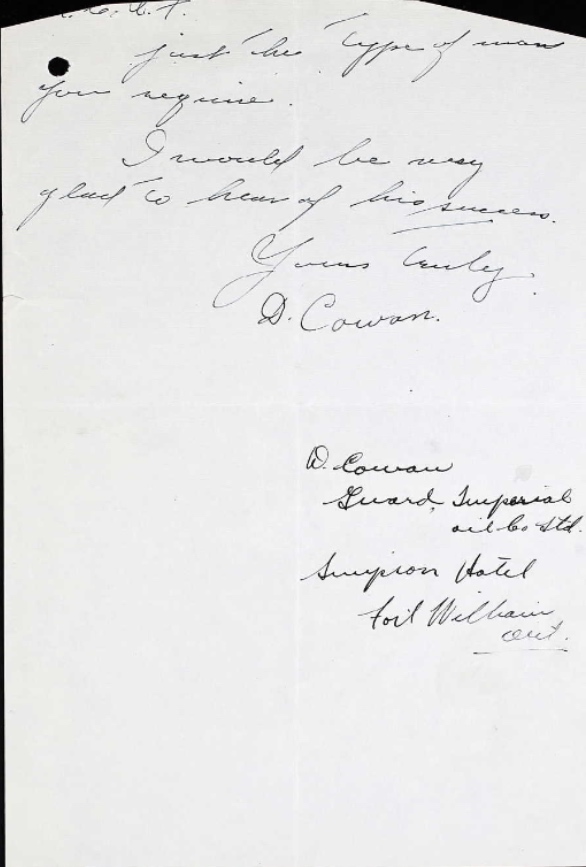 just the type of man
you require.
I would be very
glad to hear of his success.
Yours truly,
D. Cowan.
D. Cowan
Guard, Imperial
oil Co Ltd.
Simpson Hotel
Fort William
Ont.